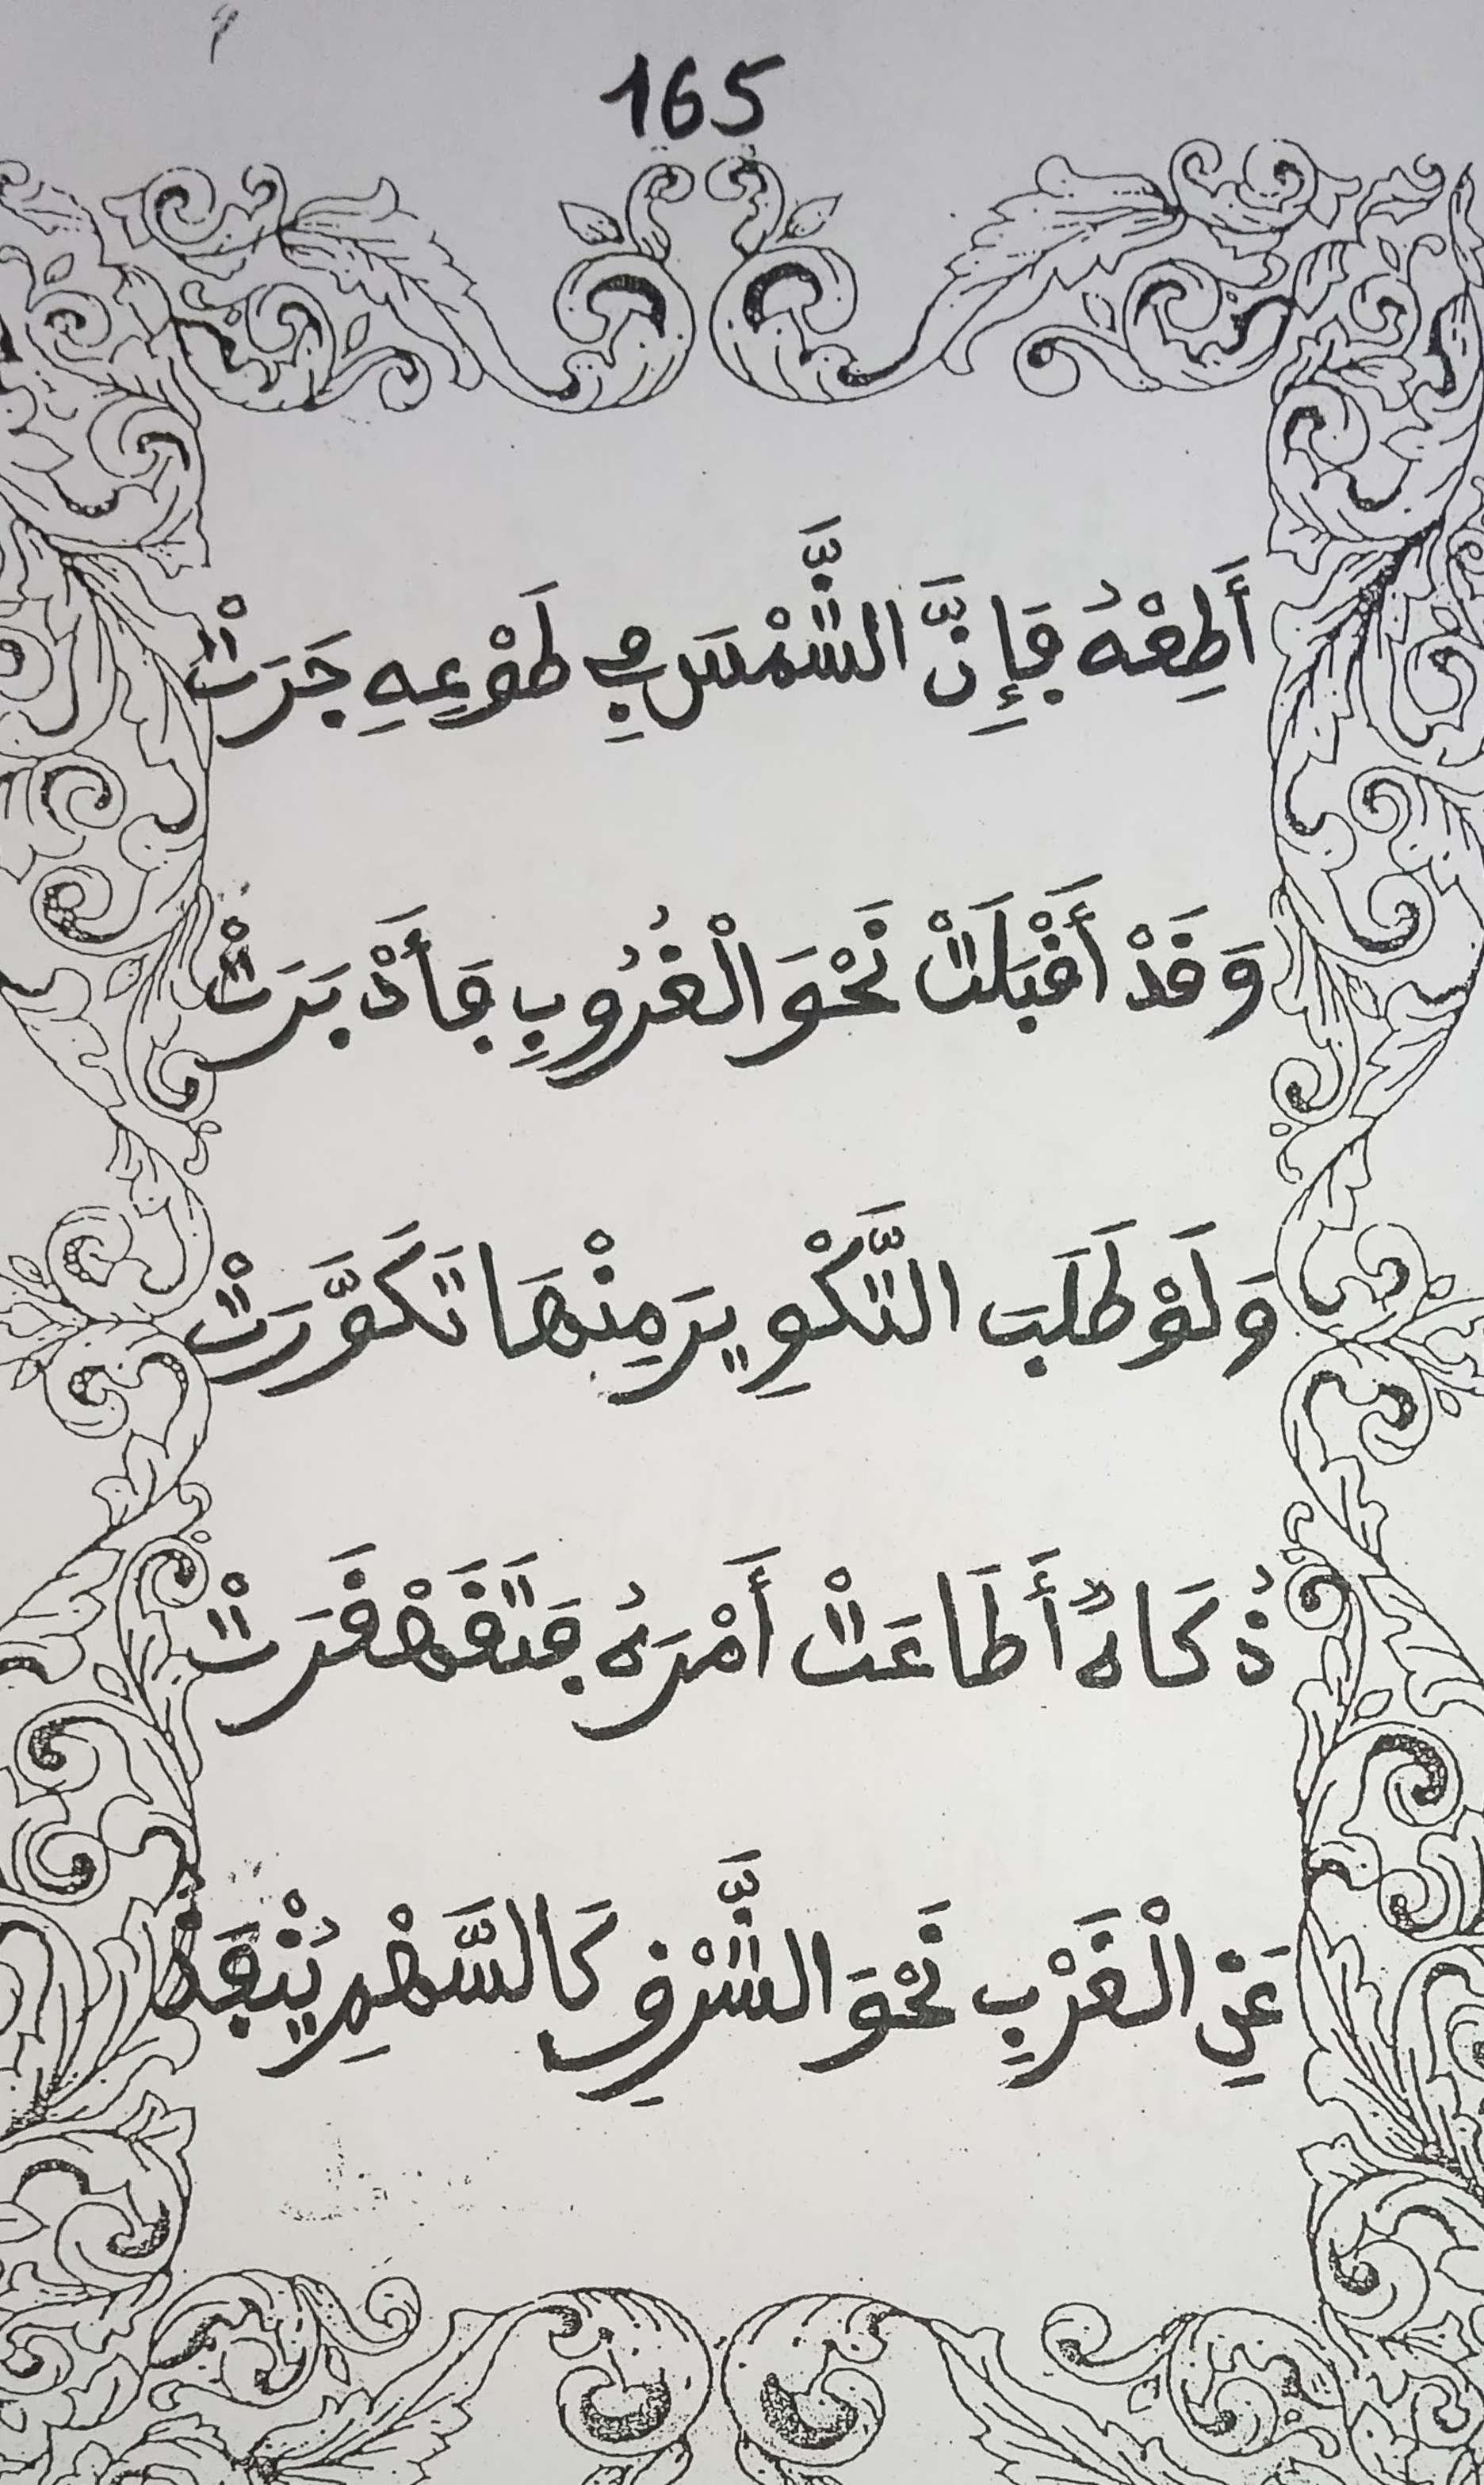 165
أَطِعْهُ فَإِنَّ الشَّمْسَ فِي طَوْعِهِ جَرَتْ
وَقَدْ أَقْبَلَتْ نَحْوَ الْغُرُوبِ فَأَدْبَرَتْ
وَلَوْ طَلَبَ التَّكْوِيرَ مِنْهَا تَكَوَّرَتْ
ذُكَاءٌ أَطَاعَتْ أَمْرَهُ فَتَقَهْقَرَتْ
عَنِ الْغَرْبِ نَحْوَ الشَّرْقِ كَالسَّهْمِ يُنْفَذْ